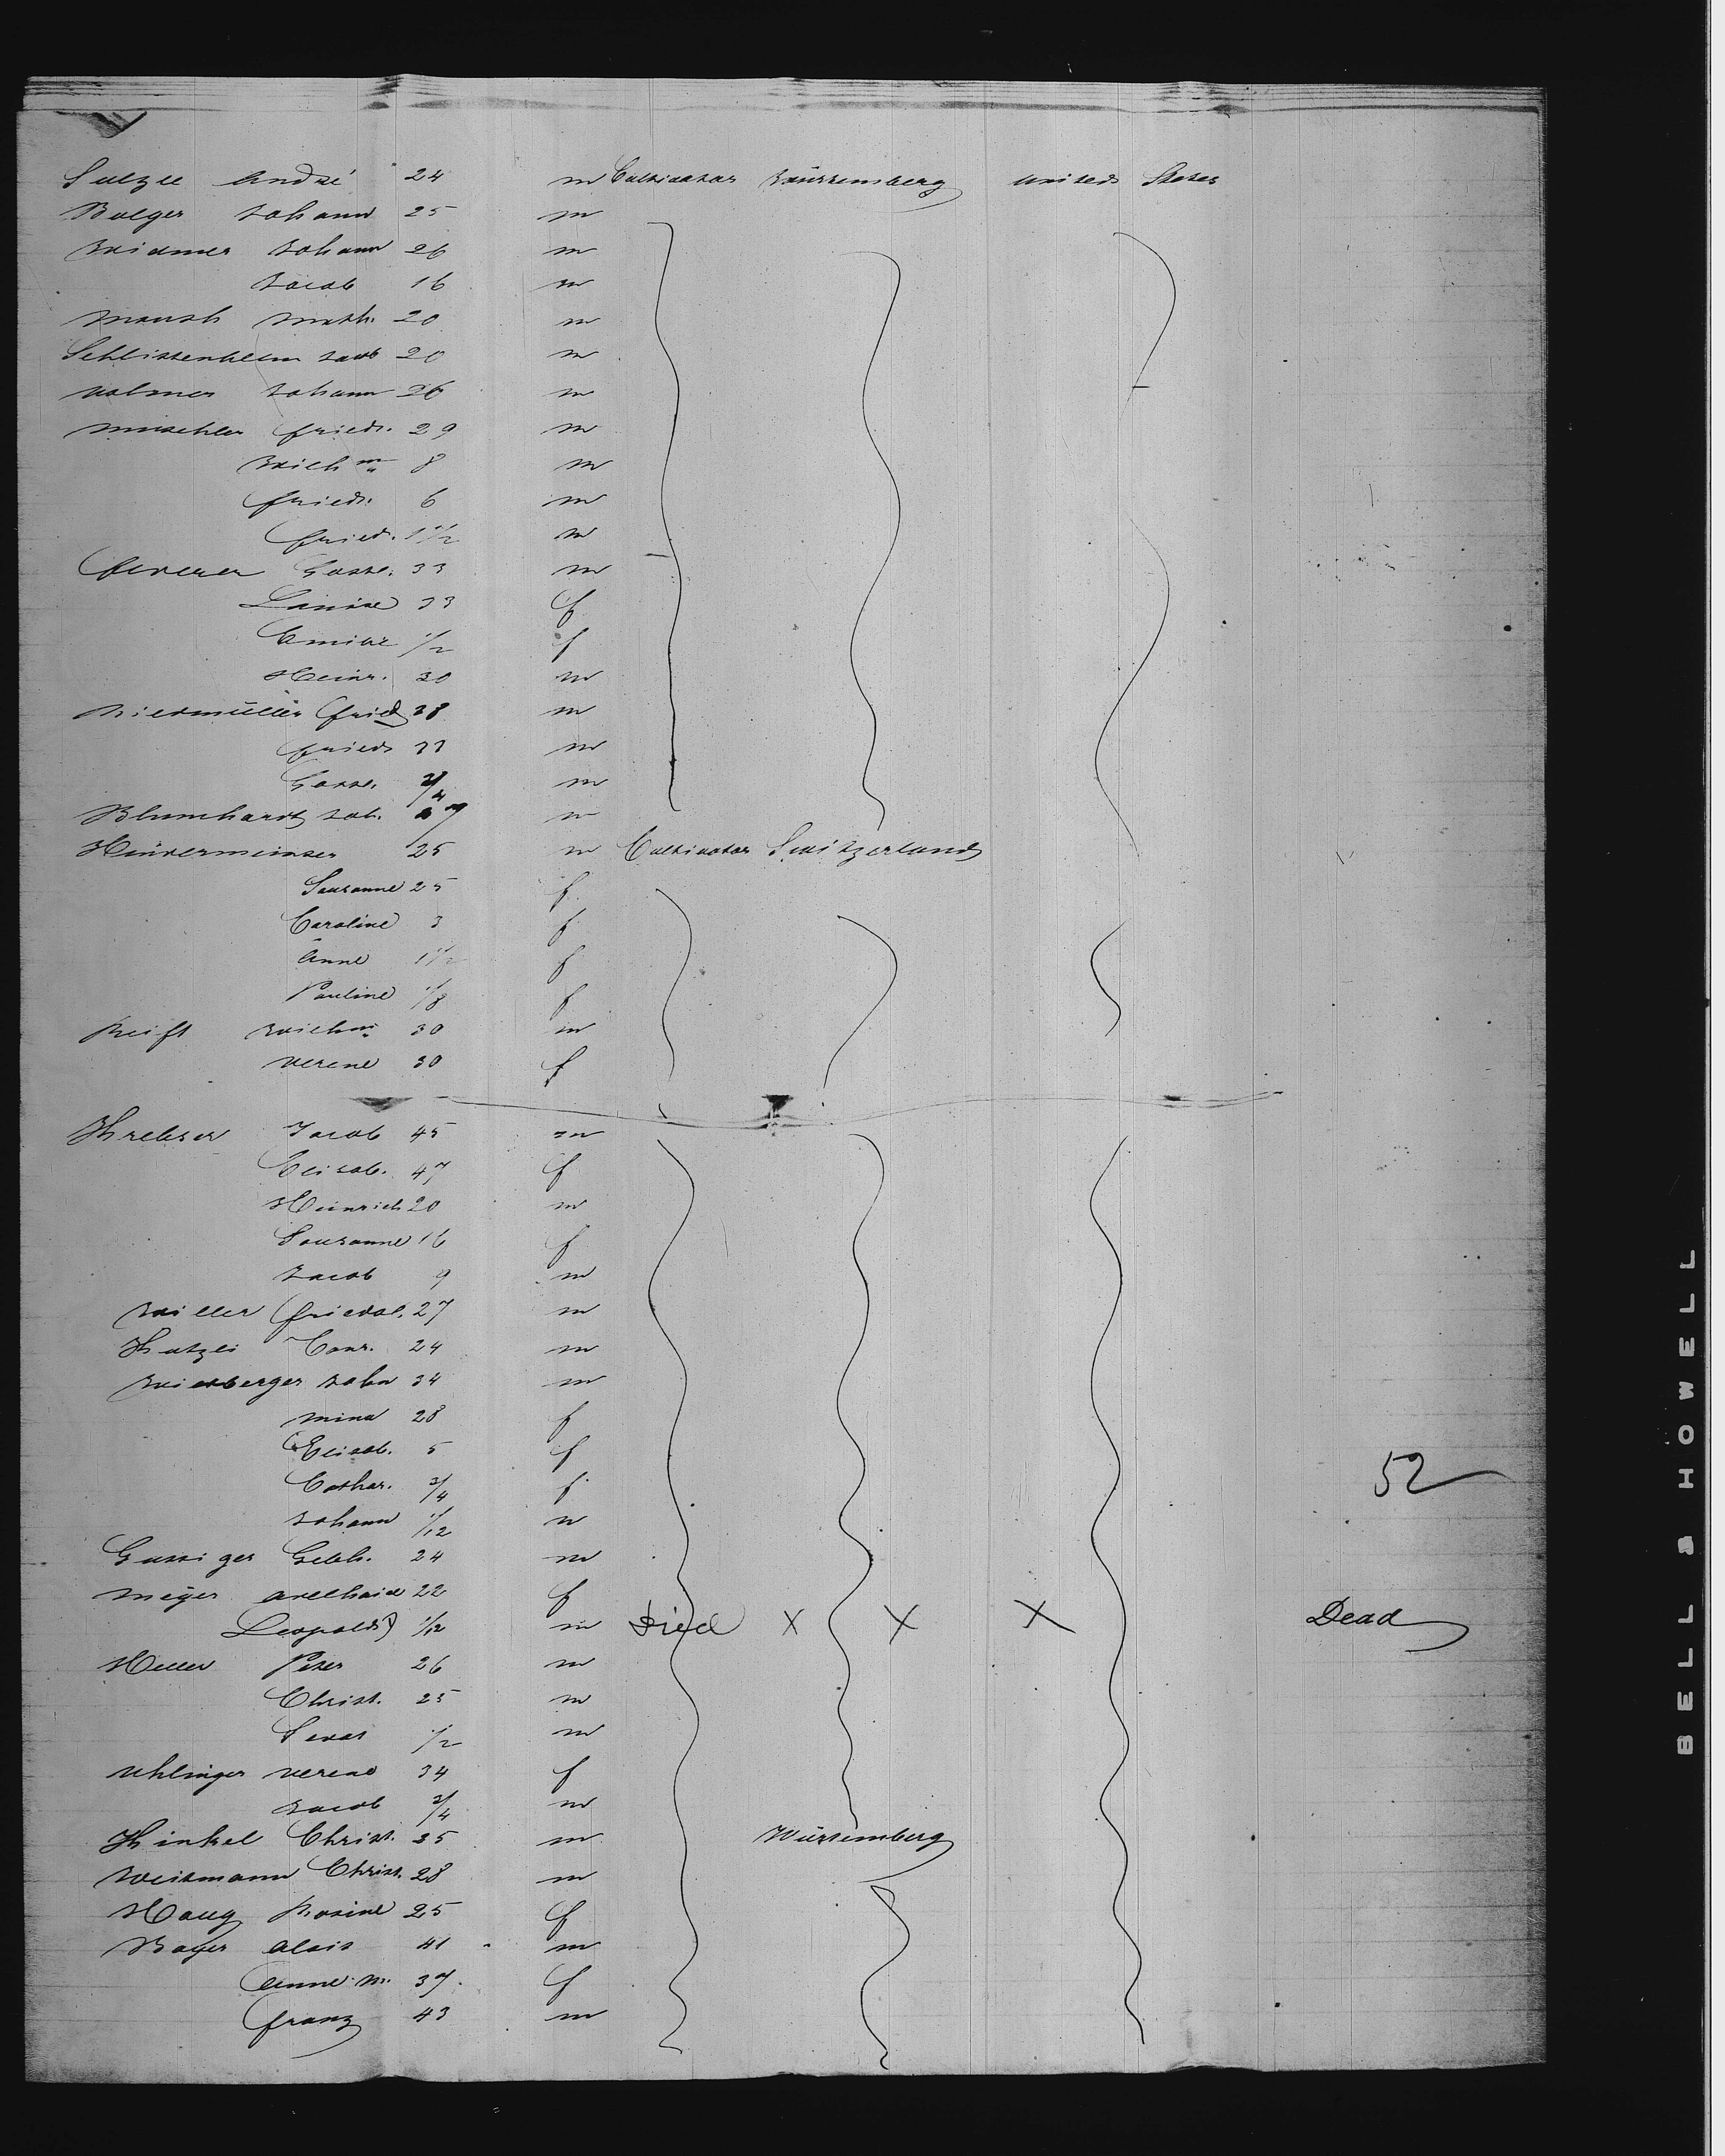 Sulzle André 24 m Cultivator Würtemberg United States
Bolger Johann 25 m
Widmer Johann 26 m
Jacob 16 m
Mansh Math. 20 m
Jacob 20 m
Volmer Johann 26 m
Mischler Friedr. 29 m
Wilhm 8 m
Friedr. 6 m
Fried. 1 1/2 m
Feverer Gottl. 33 m
Louise 33 f
Emilie 1/2 f
Heinr. 30 m
Riedmüller Fried 38 m
Fried 33 m
Gottl. 3/4 m
Blumhardt Joh. m
25 m Cultivator Switzerland
Susanne 25 f
Caroline 3 f
Anne 1 1/2 f
Pauline 1/8 f
Reift Wilhm 30 m
Verene 30 f
Krebser Jacob 45 m
Elisab. 47 f
Heinrich 20 m
Sousanne 16 f
Jacob 9 m
Willer Friedol. 27 m
Hatzli Conr. 24 m
Wiesberger John 34 m
Mina 28 f
Elisab. 5 f
Cathar. 3/4 f
52
Johann 1/12 m
Gebh. 24 m
Meyer Adelhaid 22 f
Leopold 1/12 m Died X X X Dead
Heller Peter 26 m
Christ. 25 m
1/2 m
Uhlinger Verene 34 f
Jacob 3/4 m
Hinkel Christ. 25 m Würtemberg
Weitmann Christ. 28 m
Haug Rosine 25 f
Bayer Alois 41 m
Anne M. 37 f
Franz 43 m
BELL & HOWELL